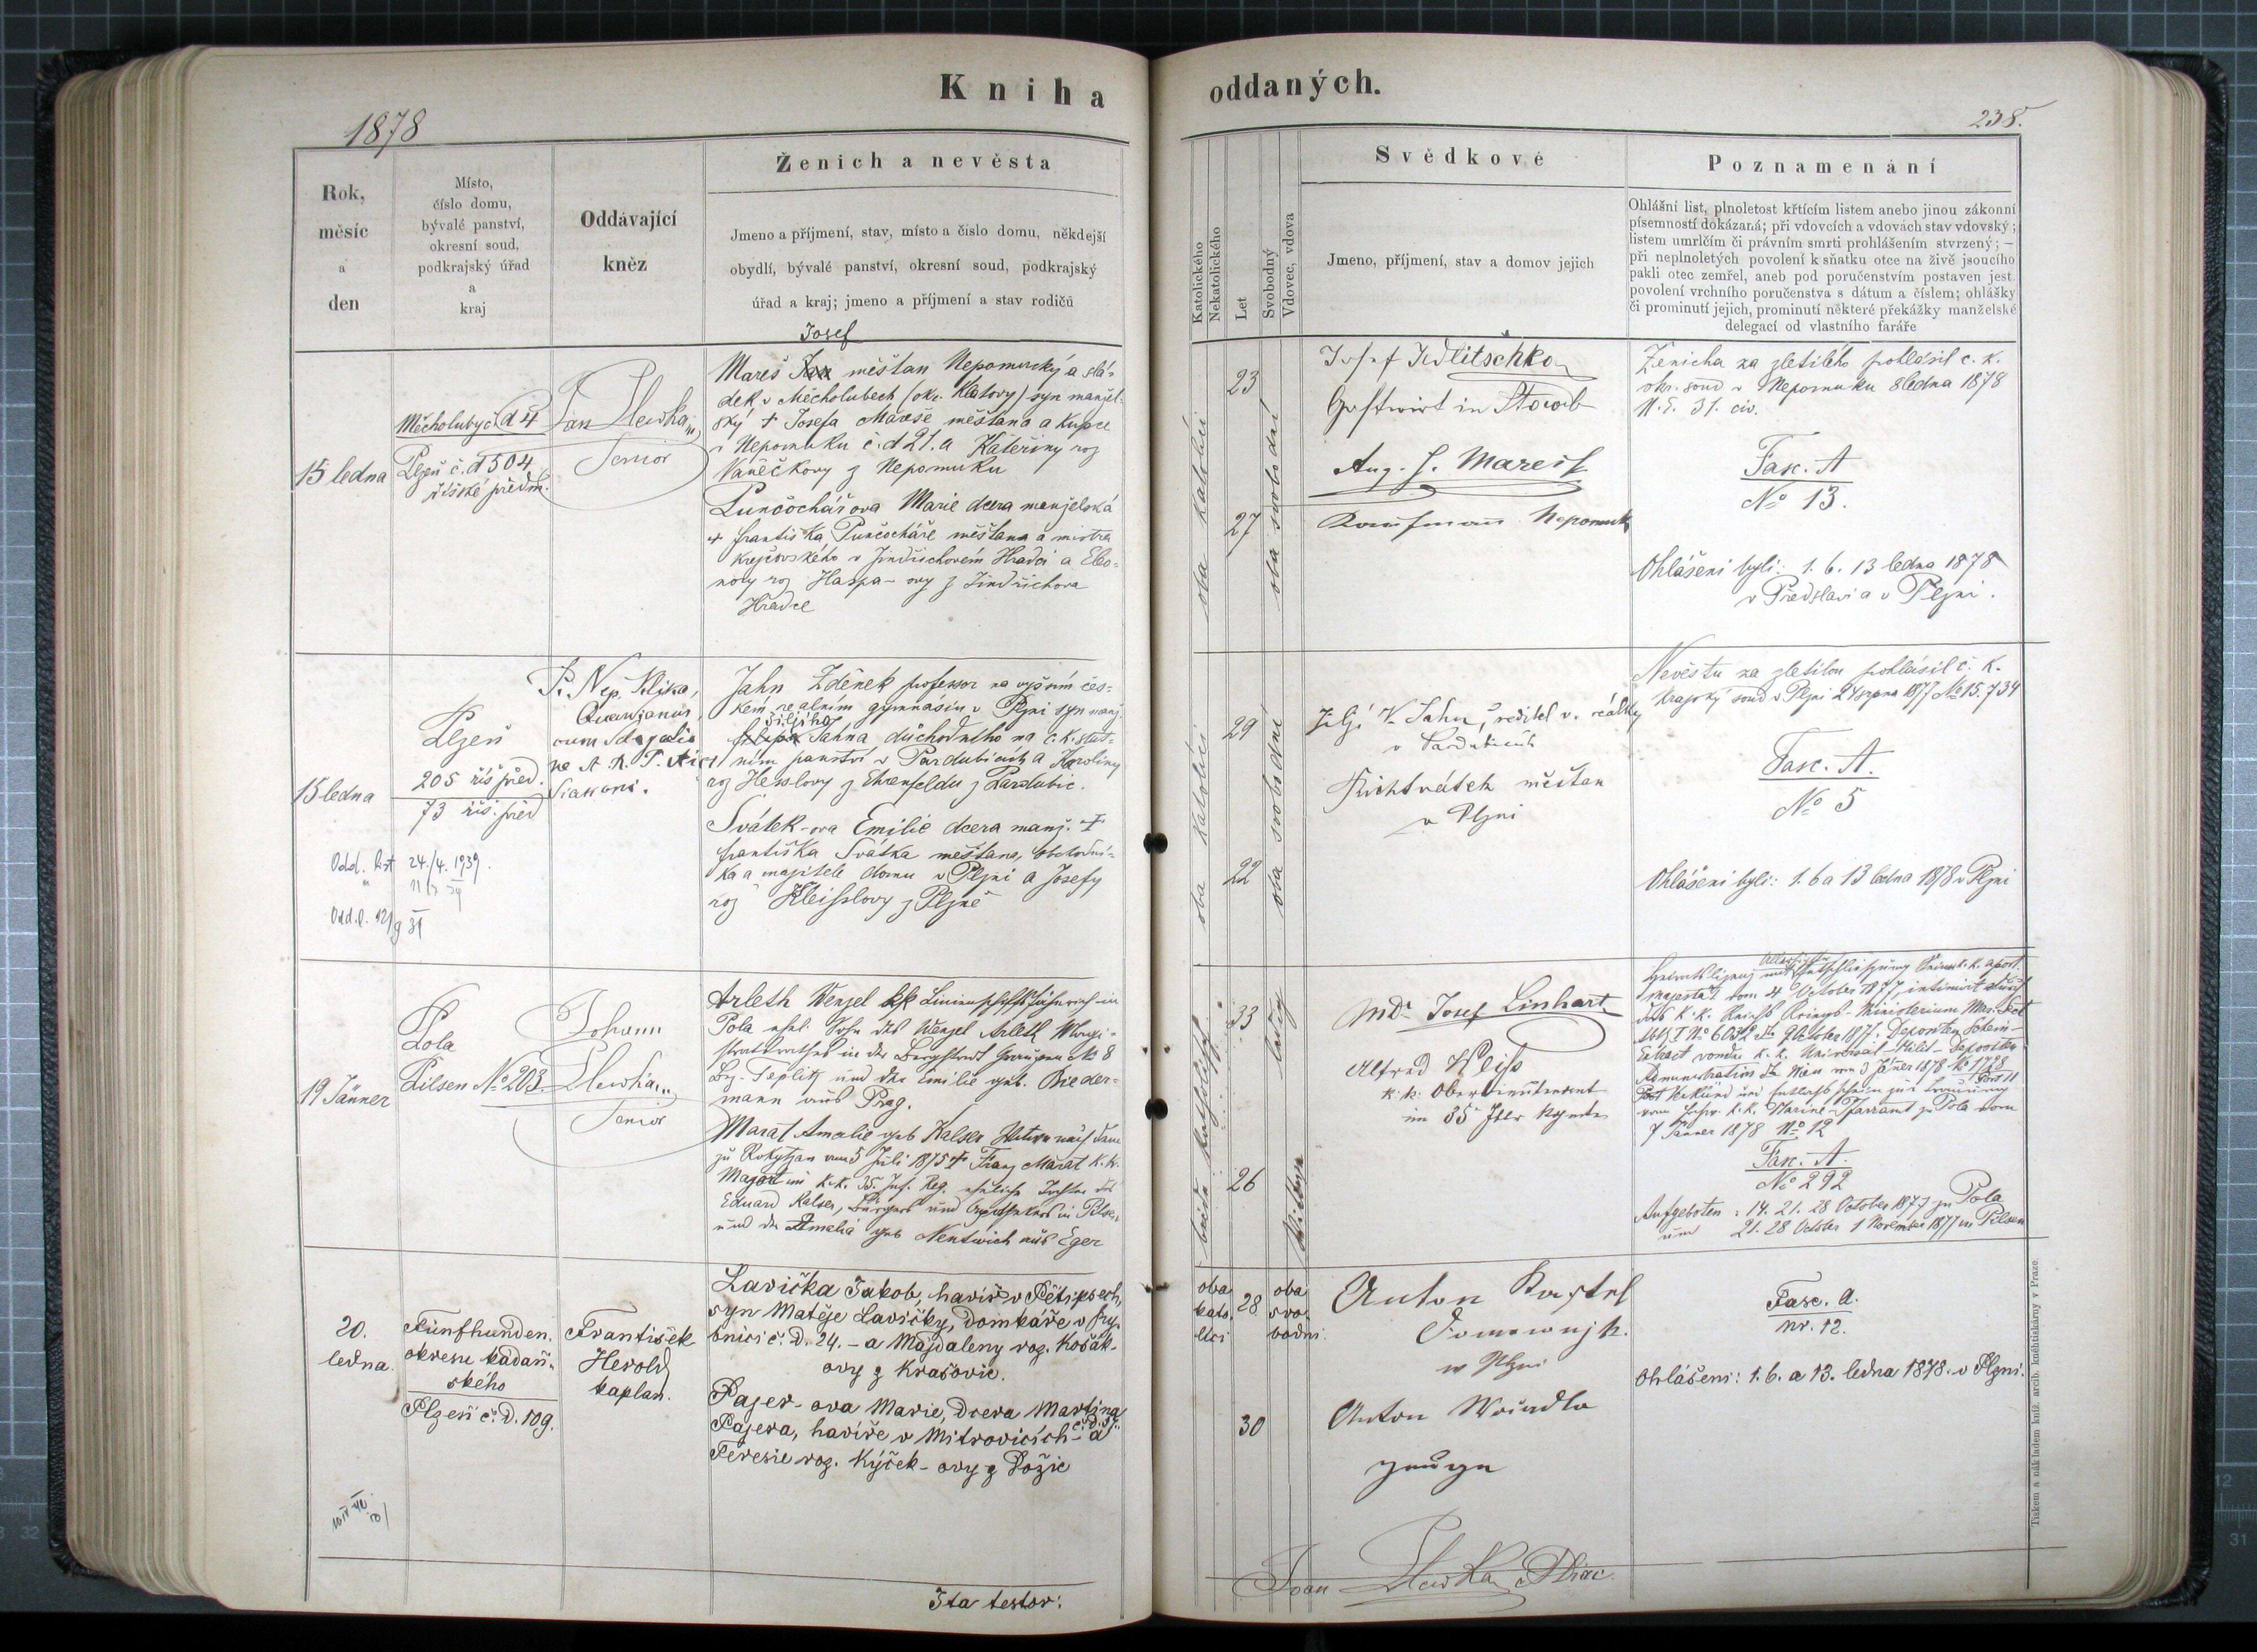 Kniha oddaných.
1878
238.
Rok,
měsíc
a
den
Místo,
číslo domu,
bývalé panství,
okresní soud,
podkrajský úřad
a
kraj
Oddávající
kněz
Ženich a nevěsta
Jmeno a příjmení, stav, místo a číslo domu, někdejší
obydlí, bývalé panství, okresní soud, podkrajský
úřad a kraj; jmeno a příjmení a stav rodičů
Katolického
Nekatolického
Let
Svobodný
Vdovec, vdova
Svědkové
Jmeno, příjmení, stav a domov jejich
Poznamenání
Ohlášní list, plnoletost křtícím listem anebo jinou zákonní
písemností dokázaná; při vdovcích a vdovách stav vdovský;
listem umrlčím či právním smrti prohlášením stvrzený; —
při neplnoletých povolení k sňatku otce na živě jsoucího
pakli otec zemřel, aneb pod poručenstvím postaven jest
povolení vrchního poručenstva s dátum a číslem; ohlášky
či prominutí jejich, prominutí některé překážky manželské
delegací od vlastního faráře
15 ledna
Měcholupy č. d 4
Plzeň č. d 504
říšské předm.
Jan Hewka
Senior
Josef
Mareš Jan měštan Nepomucký a slá-
dek v Měcholubech (okr. Klatovy) syn manžel-
ský + Josefa Mareše měštana a kupce
v Nepomuku č. d 21. a Kateřiny roz
Vaněčkovy z Nepomuku
Punčochářova Marie dcera manželská
+ františka Punčocháře měštana a mistra
krejčovského v Jindřichovém Hradci a Eleo-
nory roz Haspa-ovy z Jindřichova
Hradce
oba katolíci
23
27
oba svobodní
Josef
Gastwirt in
Aug. J. Maresch
Kaufmann Nepomuk
Ženicha za zletilého prohlásil c. k.
okr. soud v Nepomuku 8 ledna 1878
N. E. 31. civ.
Fasc. A
No 13.
Ohlášeni byli: 1. 6. 13 ledna 1878
v Předslavi a v Plzni.
15 ledna
Plzeň
205 říš před.
73 říš. před
P. Nep. Klika,
Jahn Zdeněk professor na vyšším čes-
kém realním gymnásiu v Plzni syn manž.
Jiljího
Jahna důchodního na c. k. stát-
ním panství v Pardubicích a Karoliny
roz Hesslovy z Ehrenfeldu z Pardubic.
Svátek-ova Emilie dcera manž. +
františka Svátka měštana, obchodní-
ka a majitele domu v Plzni a Josefy
roz Kleisslovy z Plzně
Odd. list 24./4. 1939.
oba katolíci
29
22
oba svobodní
Jiljí V. Jahn, ředitel v. reálky
v Pardubicích
měštan
v Plzni
Nevěstu za zletilou prohlásil c. k.
krajský soud v Plzni 27 srpna 1877 No 15.734
Fasc. A.
No 5
Ohlášeni byli: 1. 6 a 13 ledna 1878 v Plzni
19 Jänner
Pola
Pilsen No 203
Johann
Hewka
Senior
Arleth Wenzel kk Linienschiffsfähnrich in
Pola ehel. Sohn des Wenzel Arleth Magi-
stratsrathes in der Bergstadt Graupen No 8
Bz. Teplitz und der Emilie geb. Bieder-
mann aus Prag.
Marat Amalie geb Kalser Witwe nach dem
zu Rokytzan am 5 Juli 1875 + Franz Marat k. k.
Major im k. k. 35. Inf. Reg. eheliche Tochter des
Eduard Kalser, Bürgers und Apothekers in Pilsen
und der Amelia geb Nentwich aus Eger
beide katholisch
33
26
ledig
Witwe
MDr Josef Linhart
Alfred Kleiss
k. k. Oberlieutenant
im 35 Regmte
Majestät vom 4 October 1877, intimirt durch
des k. k. Reichs Kriegs-Ministerium
7 Jänner 1878 No 12
Fasc. A.
No 292
Aufgeboten: 14. 21. 28 October 1877 zu Pola
und 21. 28 October 1 November 1877 in Pilsen
20.
ledna.
Fünfhunden.
okresu kadaň-
ského
Plzeň č. D. 109.
František
Herold
kaplan.
Lavička Jakob, havíř v Pětipsech,
syn Matěje Lavičky, domkáře v
bnici č. D. 24. - a Majdaleny roz. Košák-
ovy z Krašovic.
Pajer-ova Marie, dcera Martina
Pajera, havíře v Mitrovicích č. D. 37. a
Teresie roz. Kýček-ovy z Dožic
oba
kato-
líci
28
30
oba
svo-
bodni.
Anton
w Plzni
Anton
zeuge
Fasc. A.
nr. 12.
Ohlášeni: 1. 6. a 13. ledna 1878. v Plzni.
Ita testor:
Joan Hewka
Tiskem a nákladem kníž. arcib. kněhtiskárny v Praze.